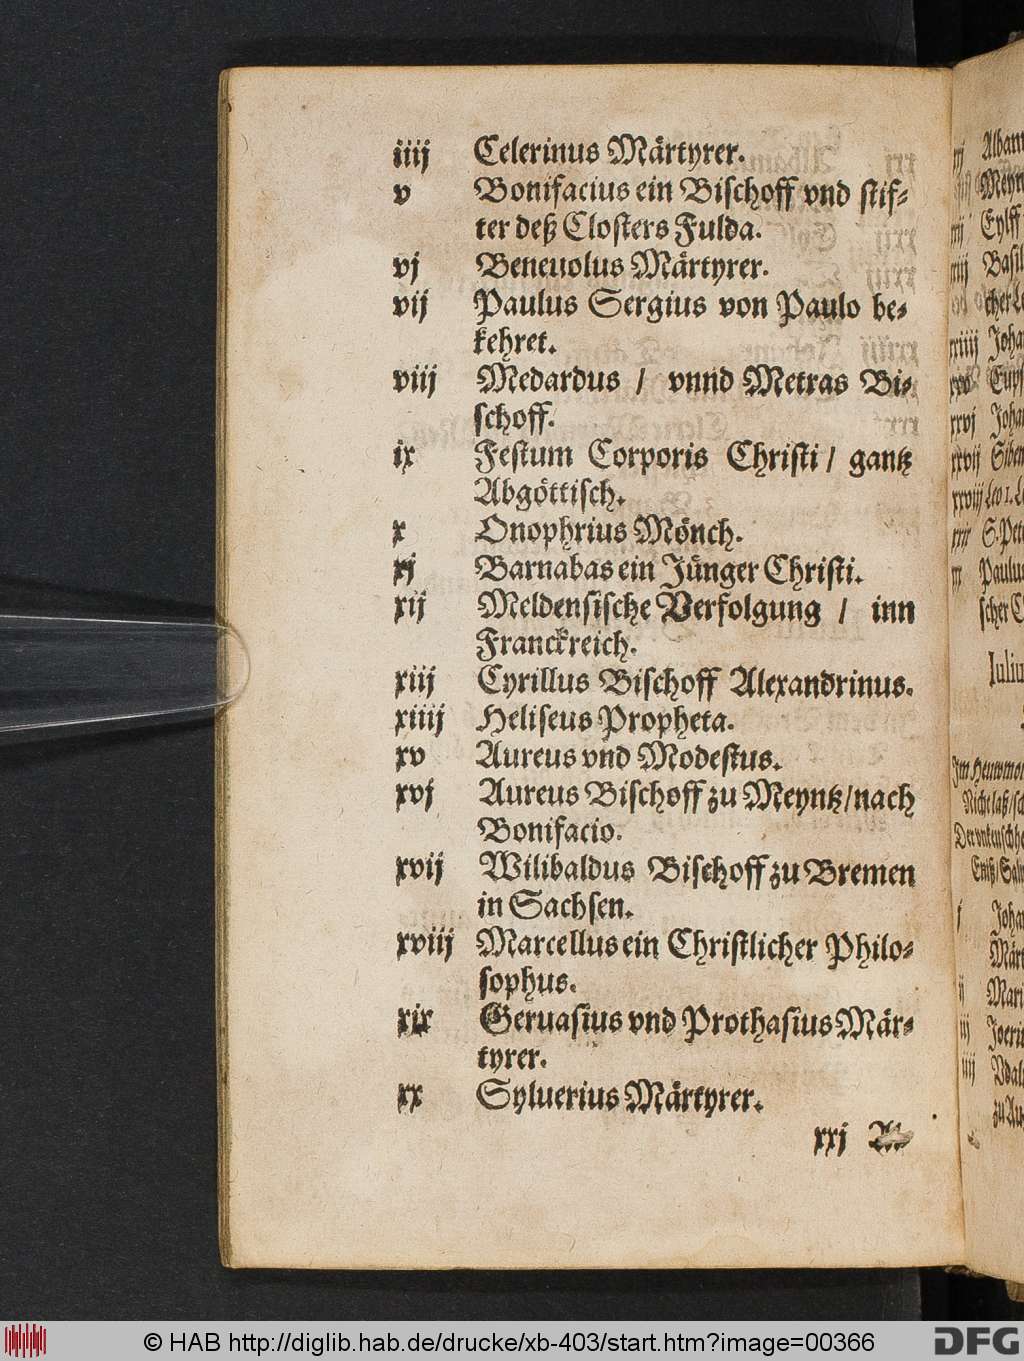 iiij Celerinus Märtyrer.
v Bonifacius ein Bischoff vnd stif-
ter deß Closters Fulda.
vj Beneuolus Märtyrer.
vij Paulus Sergius von Paulo be-
kehret.
viij Medardus / vnnd Metras Bi-
schoff.
ix Festum Corporis Christi / gantz
Abgöttisch.
x Onophrius Mönch.
xj Barnabas ein Jünger Christi.
xij Meldensische Verfolgung / inn
Franckreich.
xiij Cyrillus Bischoff Alexandrinus.
xiiij Heliseus Propheta.
xv Aureus vnd Modestus.
xvj Aureus Bischoff zu Meyntz/nach
Bonifacio.
xvij Wilibaldus Bischoff zu Bremen
in Sachsen.
xviij Marcellus ein Christlicher Philo-
sophus.
xix Geruasius vnd Prothasius Mär-
tyrer.
xx Syluerius Märtyrer.
xxj
© HAB http://diglib.hab.de/drucke/xb-403/start.htm?image=00366
DFG